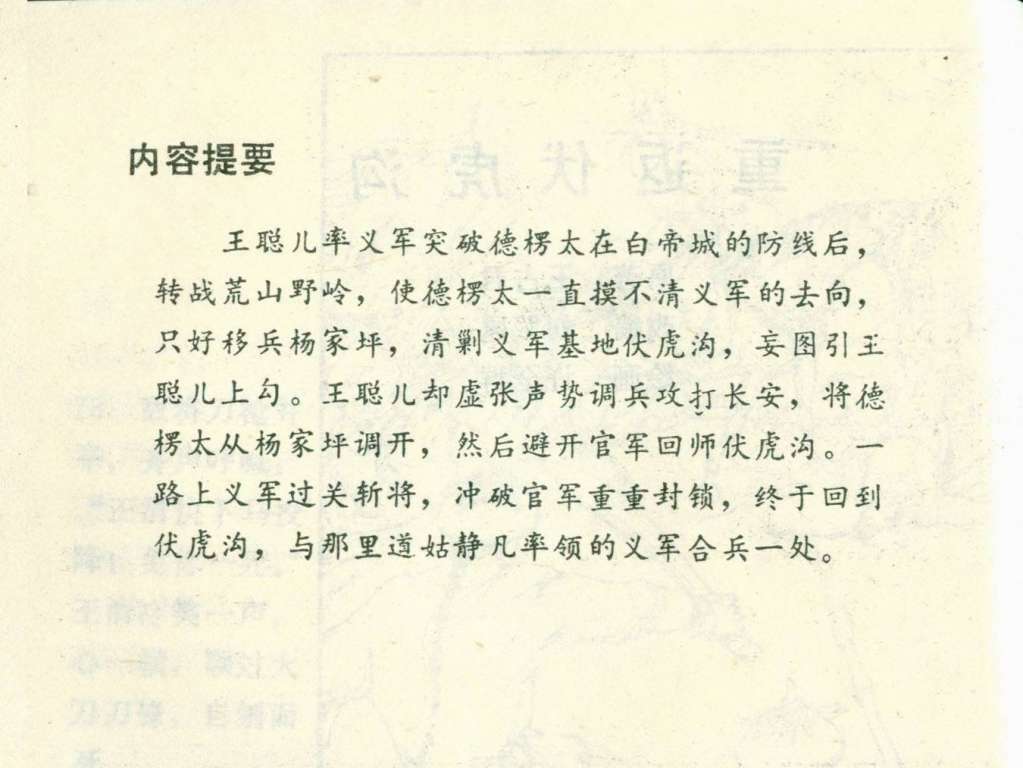 内容提要
王聪儿率义军突破德楞太在白帝城的防线后，
转战荒山野岭，使德楞太一直摸不清义军的去向，
只好移兵杨家坪，清剿义军基地伏虎沟，妄图引王
聪儿上勾。王聪儿却虚张声势调兵攻打长安，将德
楞太从杨家坪调开，然后避开官军回师伏虎沟。一
路上义军过关斩将，冲破官军重重封锁，终于回到
伏虎沟，与那里道姑静凡率领的义军合兵一处。
重返伏虎沟